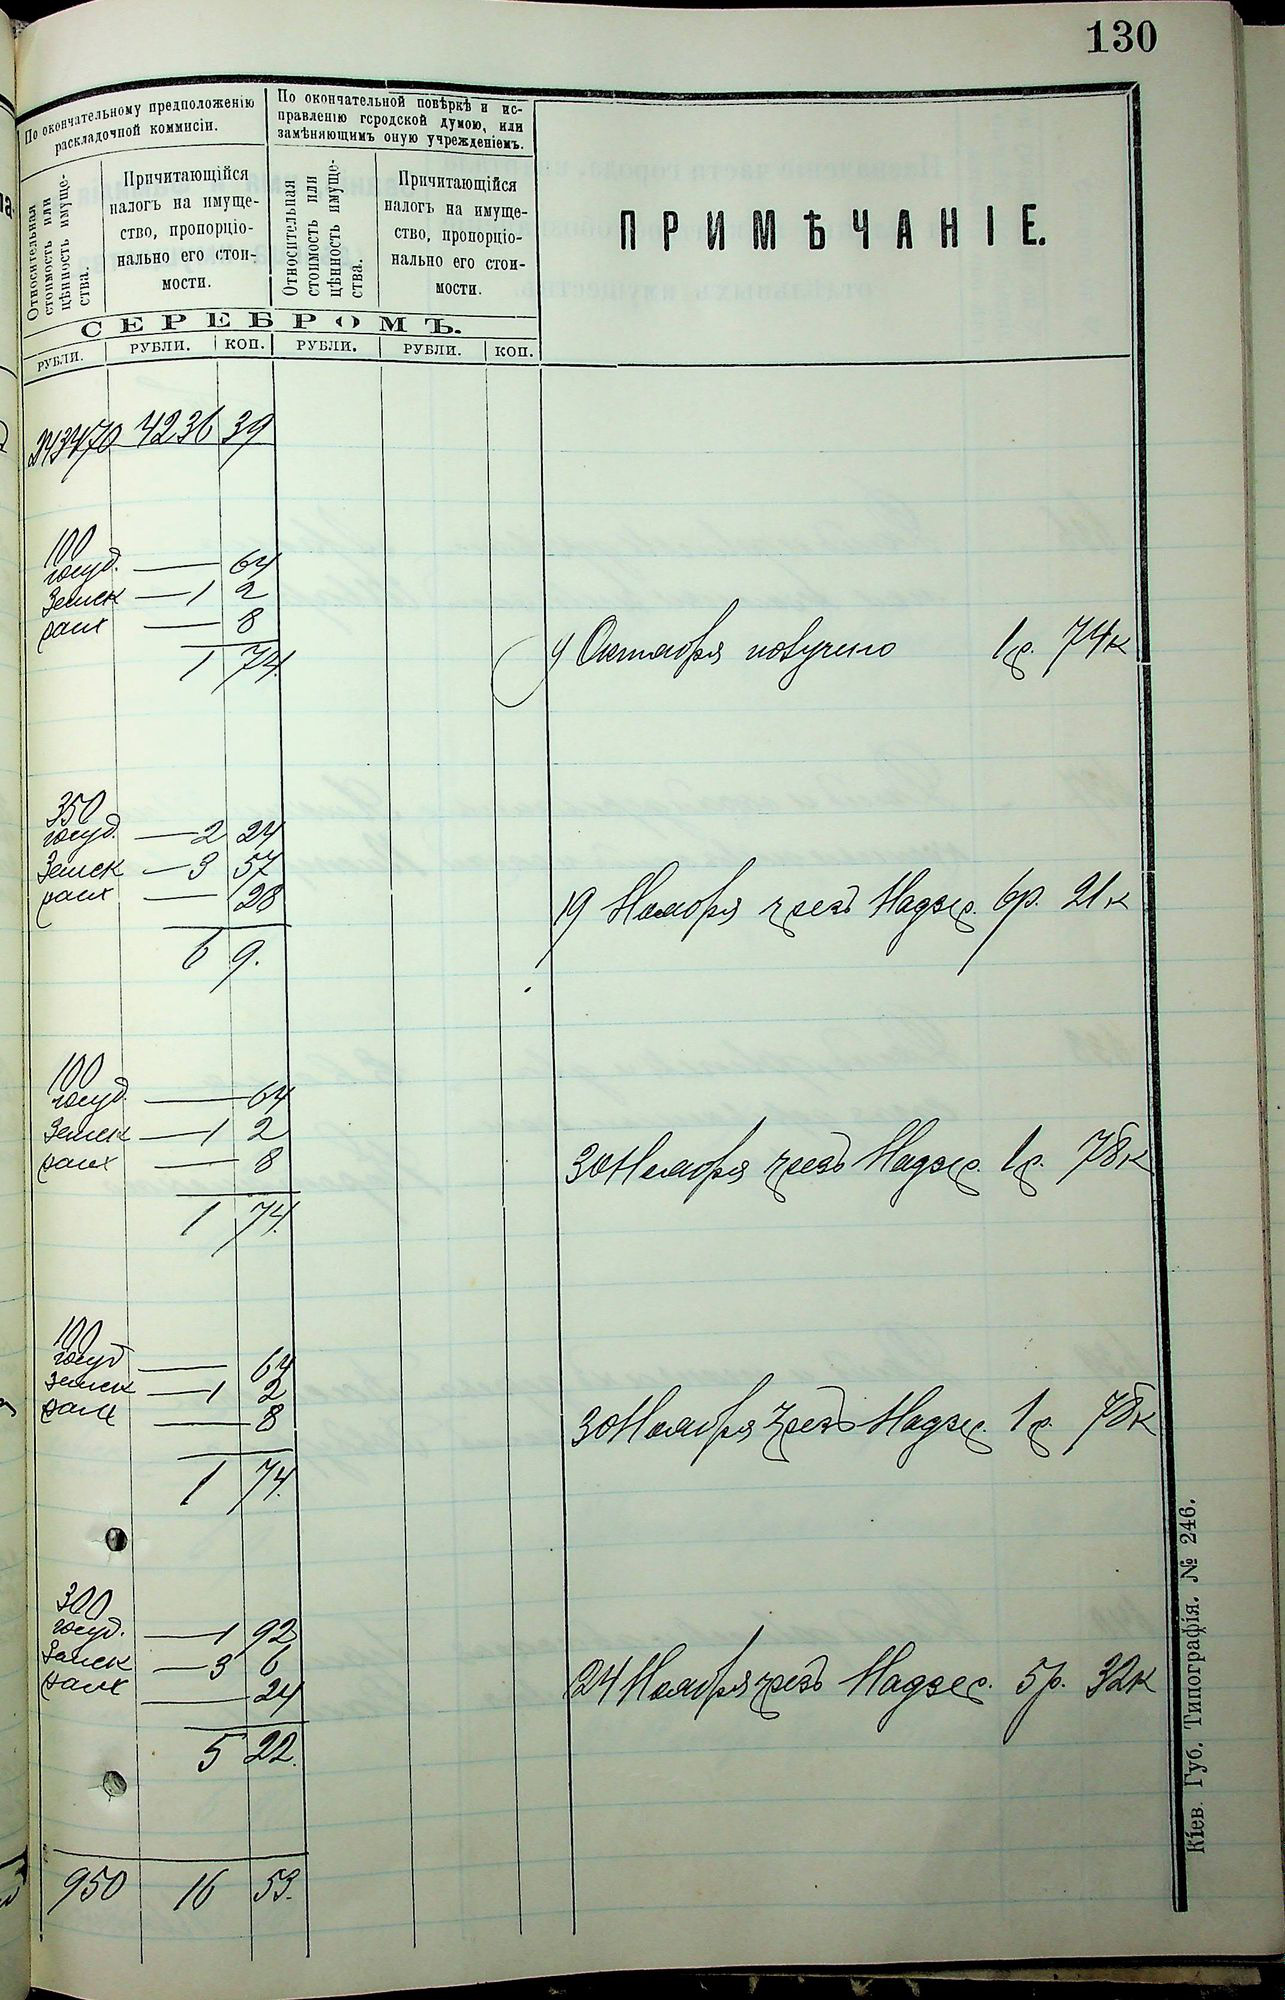 130
По окончательному предположенію
раскладочной коммисіи.
По окончательной повѣркѣ и ис-
правленію городской думою, или
замѣняющимъ оную учрежденіемъ.
Относительная
стоимость или
цѣнность имуще-
ства.
Причитающійся
налогъ на имуще-
ство, пропорціо-
нально его стои-
мости.
Относительная
стоимость или
цѣнность имуще-
ства.
Причитающійся
налогъ на имуще-
ство, пропорціо-
нально его стои-
мости.
ПРИМѢЧАНІЕ.
СЕРЕБРОМЪ.
РУБЛИ. РУБЛИ. КОП. РУБЛИ. РУБЛИ. КОП.
243470 4236 39
100
госуд. — 64
Земск — 1 2
— 8
1 74.
4 Октября получено 1р. 74к
350
госуд. — 2 24
Земск — 3 57
— 28
6 9.
19 Ноября чрезъ Надзр. 6р. 21к
100
госуд. — 64
Земск — 1 2
— 8
1 74.
30 Ноября чрезъ Надзр. 1р. 78к
100
госуд — 64
Земск — 1 2
— 8
1 74.
30 Ноября чрезъ Надзр. 1р. 78к
300
госуд. — 1 92
Земск — 3 6
— 24
5 22.
24 Ноября чрезъ Надзр. 5р. 32к
950 16 53.
Кіев. Губ. Типографія. № 246.